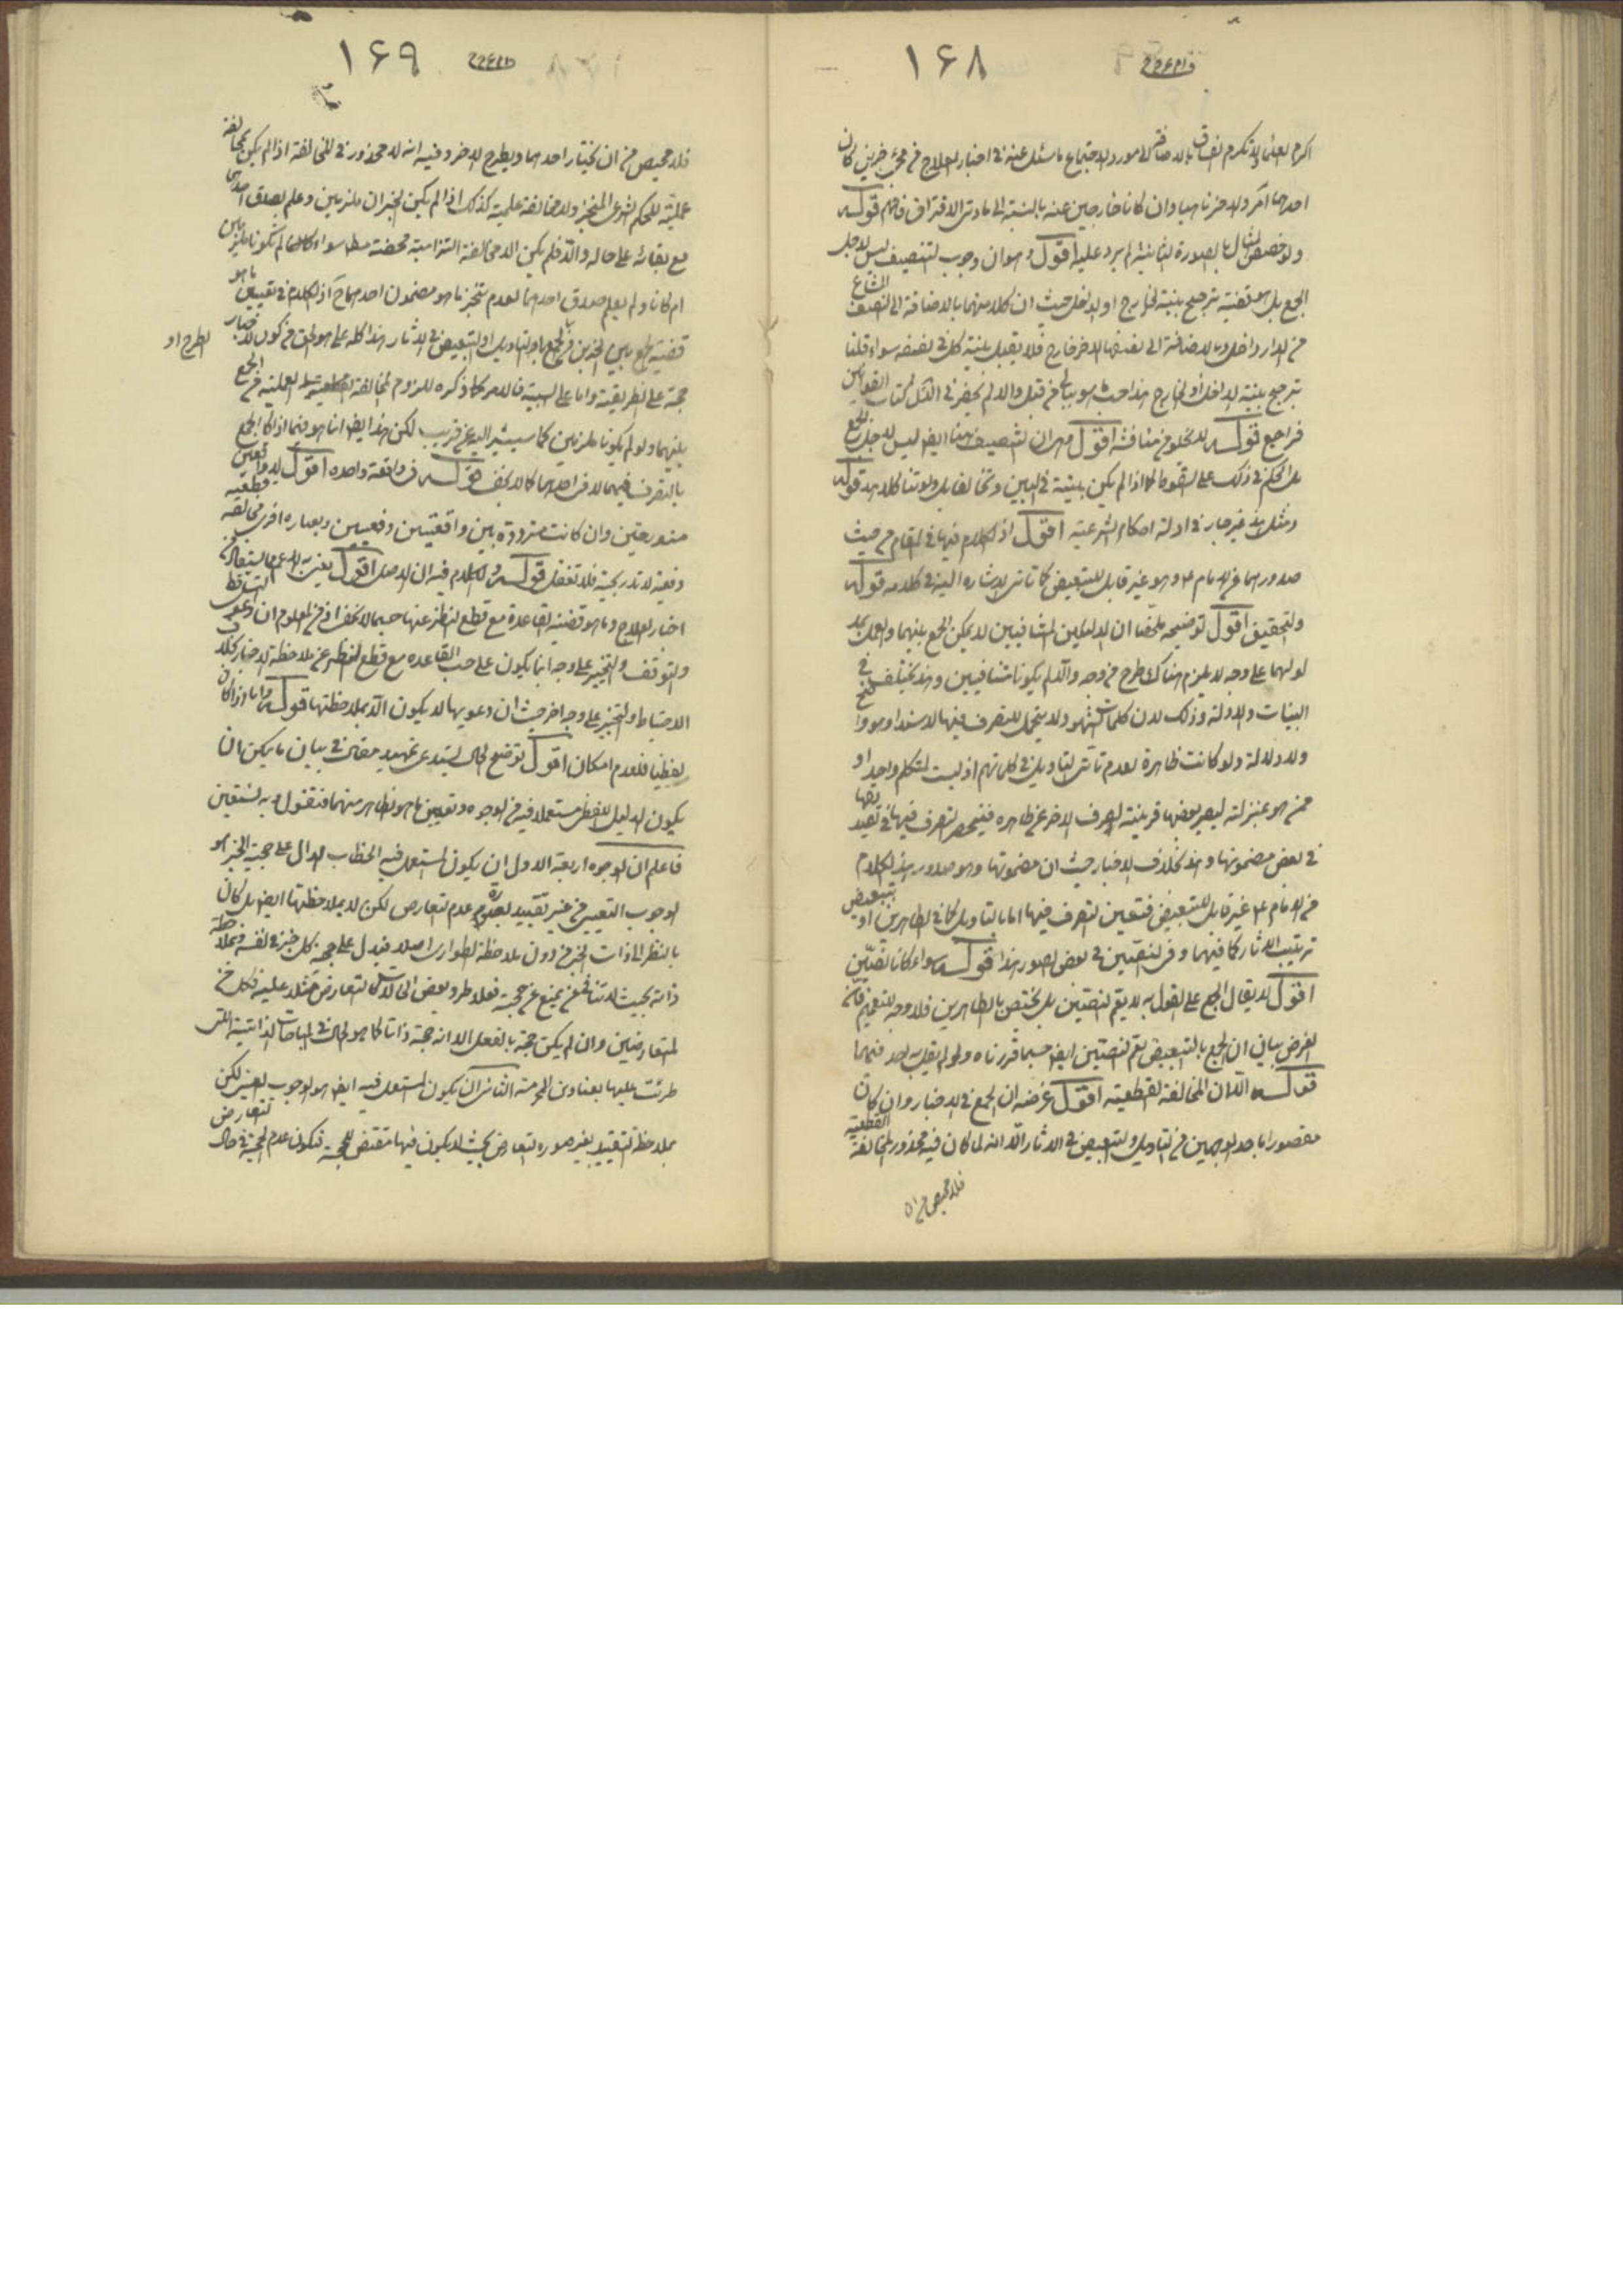 ۱۶۸
اكرم العلماء ولا تكرم الفساق بالاضافة الى مورد الاجتماع ما سئل عنه فى اخبار العلاج من مجئ خبرين كان
احدهما آمر والاخر ناهيا وان كانا خارجين عنه بالنسبة الى مادتى الافتراق فافهم قوله
ولو خص المثال بالصورة الثانية لم يرد عليه اقول وهو ان وجوب التنصيف ليس لاجل
الجمع بل هو قضية ترجيح بينة الخارج او الداخل حيث ان كلا منهما بالاضافة الى النصف المشاع
من الدار داخل وبالاضافة الى نصفها الاخر خارج فلا يقبل بينة كل فى نصفه سواء قلنا
بترجيح بينة الداخل او الخارج هذا حسب ما هو ببالى من قبل والا لم يحضرنى الان كتاب القوانين
فراجع قوله لا يخلو من مناقشة اقول وهى ان التنصيف هنا ايضا ليس لاجل الجمع
بل الحكم فى ذلك على السقوط كما اذا لم يكن بينة فى البين وتحالفا بل ولو تناكلا هذا قوله
ومثل هذا غير جار فى ادلة احكام الشرعية اقول اذ الكلام فيها فى المقام من حيث
صدورها من الامام ع وهو غير قابل للتبعيض كما تأتى الاشارة اليه فى كلامه قوله
والتحقيق اقول توضيحه ملخصا ان الدليلين المتنافيين لا يمكن الجمع بينهما والعمل بمد
لوليهما على وجه لا يلزم هناك طرح من وجه والا لم يكونا متنافيين وهذا يختلف فى
البينات والادلة وذلك لان كلمات الشهود لا يتحمل للتصرف فيها لا سندا وهو واضح
ولا دلالة ولو كانت ظاهرة لعدم تأتى التاويل فى كلماتهم اذ ليست لمتكلم واحد او
ممن هو بمنزلته ليصير بعضها قرينة لصرف الاخر عن ظاهره فينحصر التصرف فيها فى تصديقها
فى بعض مضمونها وهذا بخلاف الاخبار حيث ان مضمونها وهو صدور هذا الكلام
من الامام ع غير قابل للتبعيض فتعين التصرف فيها اما بالتاويل كما فى الظاهرين او بتبعيض
ترتيب الاثار كما فيهما وفى النصين فى بعض الصور هذا قوله سواء كانا نصين
اقول لا يقال الجمع على القول به لا يعم النصين بل يختص بالظاهرين فلا وجه للتعميم فان
الغرض بيان ان الجمع بالتبعيض يعم النصين ايضا حسبما قررناه ولو لم يقل به احد فيهما
قوله الا ان المخالفة القطعية اقول غرضه ان الجمع فى الاخبار وان كان
مقصورا باحد الوجهين من التاويل والتبعيض فى الاثار الا انه لما كان فيه محذور المخالفة القطعية
فلا محيص من ان
۱۶۹
فلا محيص من ان يختار احدهما ويطرح الاخر وفيه انه لا محذور فى المخالفة اذا لم يكن بمخالفة
عملية للحكم الشرعى المنجز والمخالفة علمية كذلك اذا لم يكن الخبران ملزمين وعلم بصدق احدهما
مع بقائه على حاله والا فلم يكن الا مخالفة التزامية محضة مطا سواء كانا لم يكونا ملزمين
ام كانا ولم يعلم صدق احدهما لعدم تنجز ما هو مضمون احدهما ح اذ الكلام فى تعيين ما هو
قضية الجمع بين الخبرين من الجمع بالتاويل او التبعيض فى الاثار هذا كله على ما هو الحق من كون الاخبار
حجة على الطريقية واما على السببية فالامر كما ذكره للزوم المخالفة القطعية العملية من الجمع
الطرح او
بينهما ولو لم يكونا ملزمين كما سيشير اليه عن قريب لكن هذا ايضا انما هو فيما اذا كان الجمع
بالتصرف فيهما لا فى احدهما كما لا يخفى قوله فى واقعة واحدة اقول لا واقعتين
متدرجتين وان كانت مترددة بين واقعتين دفعيتين وبعبارة اخرى مخالفة قطعية
دفعية لا تدريجية فلا تغفل قوله والكلام فيه ان الاصل اقول
اخبار العلاج وما هو قضية القاعدة مع قطع النظر عنها حسبما لا يخفى اذ من المعلوم ان دعوى التساقط
والتوقف والتخيير على وجه انما يكون على حسب القاعدة مع قطع النظر عن ملاحظة الاخبار بخلاف
الاحتياط والتخيير على وجه اخر حيث ان دعويهما لا يكون الا بملاحظتها قوله واما اذا كان
لفظيا فلعدم امكان اقول توضيح الحال يستدعى تمهيد مقال فى بيان ما يمكن ان
يكون الدليل اللفظى مستعملا فيه من الوجوه وتعيين ما هو الظاهر منهما فنقول وبه نستعين
فاعلم ان الوجوه اربعة الاول ان يكون المستعمل فيه الخطاب الدال على حجية الخبر هو
الوجوب التعيينى من غير تقييد بصورة عدم التعارض لكن لا بملاحظتها ايضا بل كان
بالنظر الى ذات الخبر من دون ملاحظة الطوارى اصلا فيدل على حجية كل خبر فى نفسه وبملاحظة
ذاته بحيث لا تنافى
المتعارضين وان لم يكن حجة بالفعل الا انه حجة ذاتا كما هو الحال فى المباحات الذاتية التى
طرئت عليها بعناوين المحرمة الثانى ان يكون المستعمل فيه ايضا هو الوجوب التعيينى لكن
بملاحظة التقييد بغير صورة التعارض بحيث لا يكون فيها مقتضى للحجية فيكون عدم الحجية فى حال التعارض